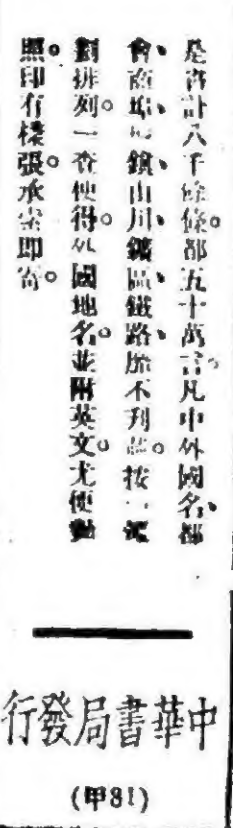 是書計八千餘條。都五十萬言。凡中外國名、都
會、商埠、鎮、山川、鑛區、鐵路、靡不刊載。按筆
劃排列。一查便得。外國地名。並附英文。尤便對
照。印有樣張。承索即寄。
中華書局發行
(甲31)